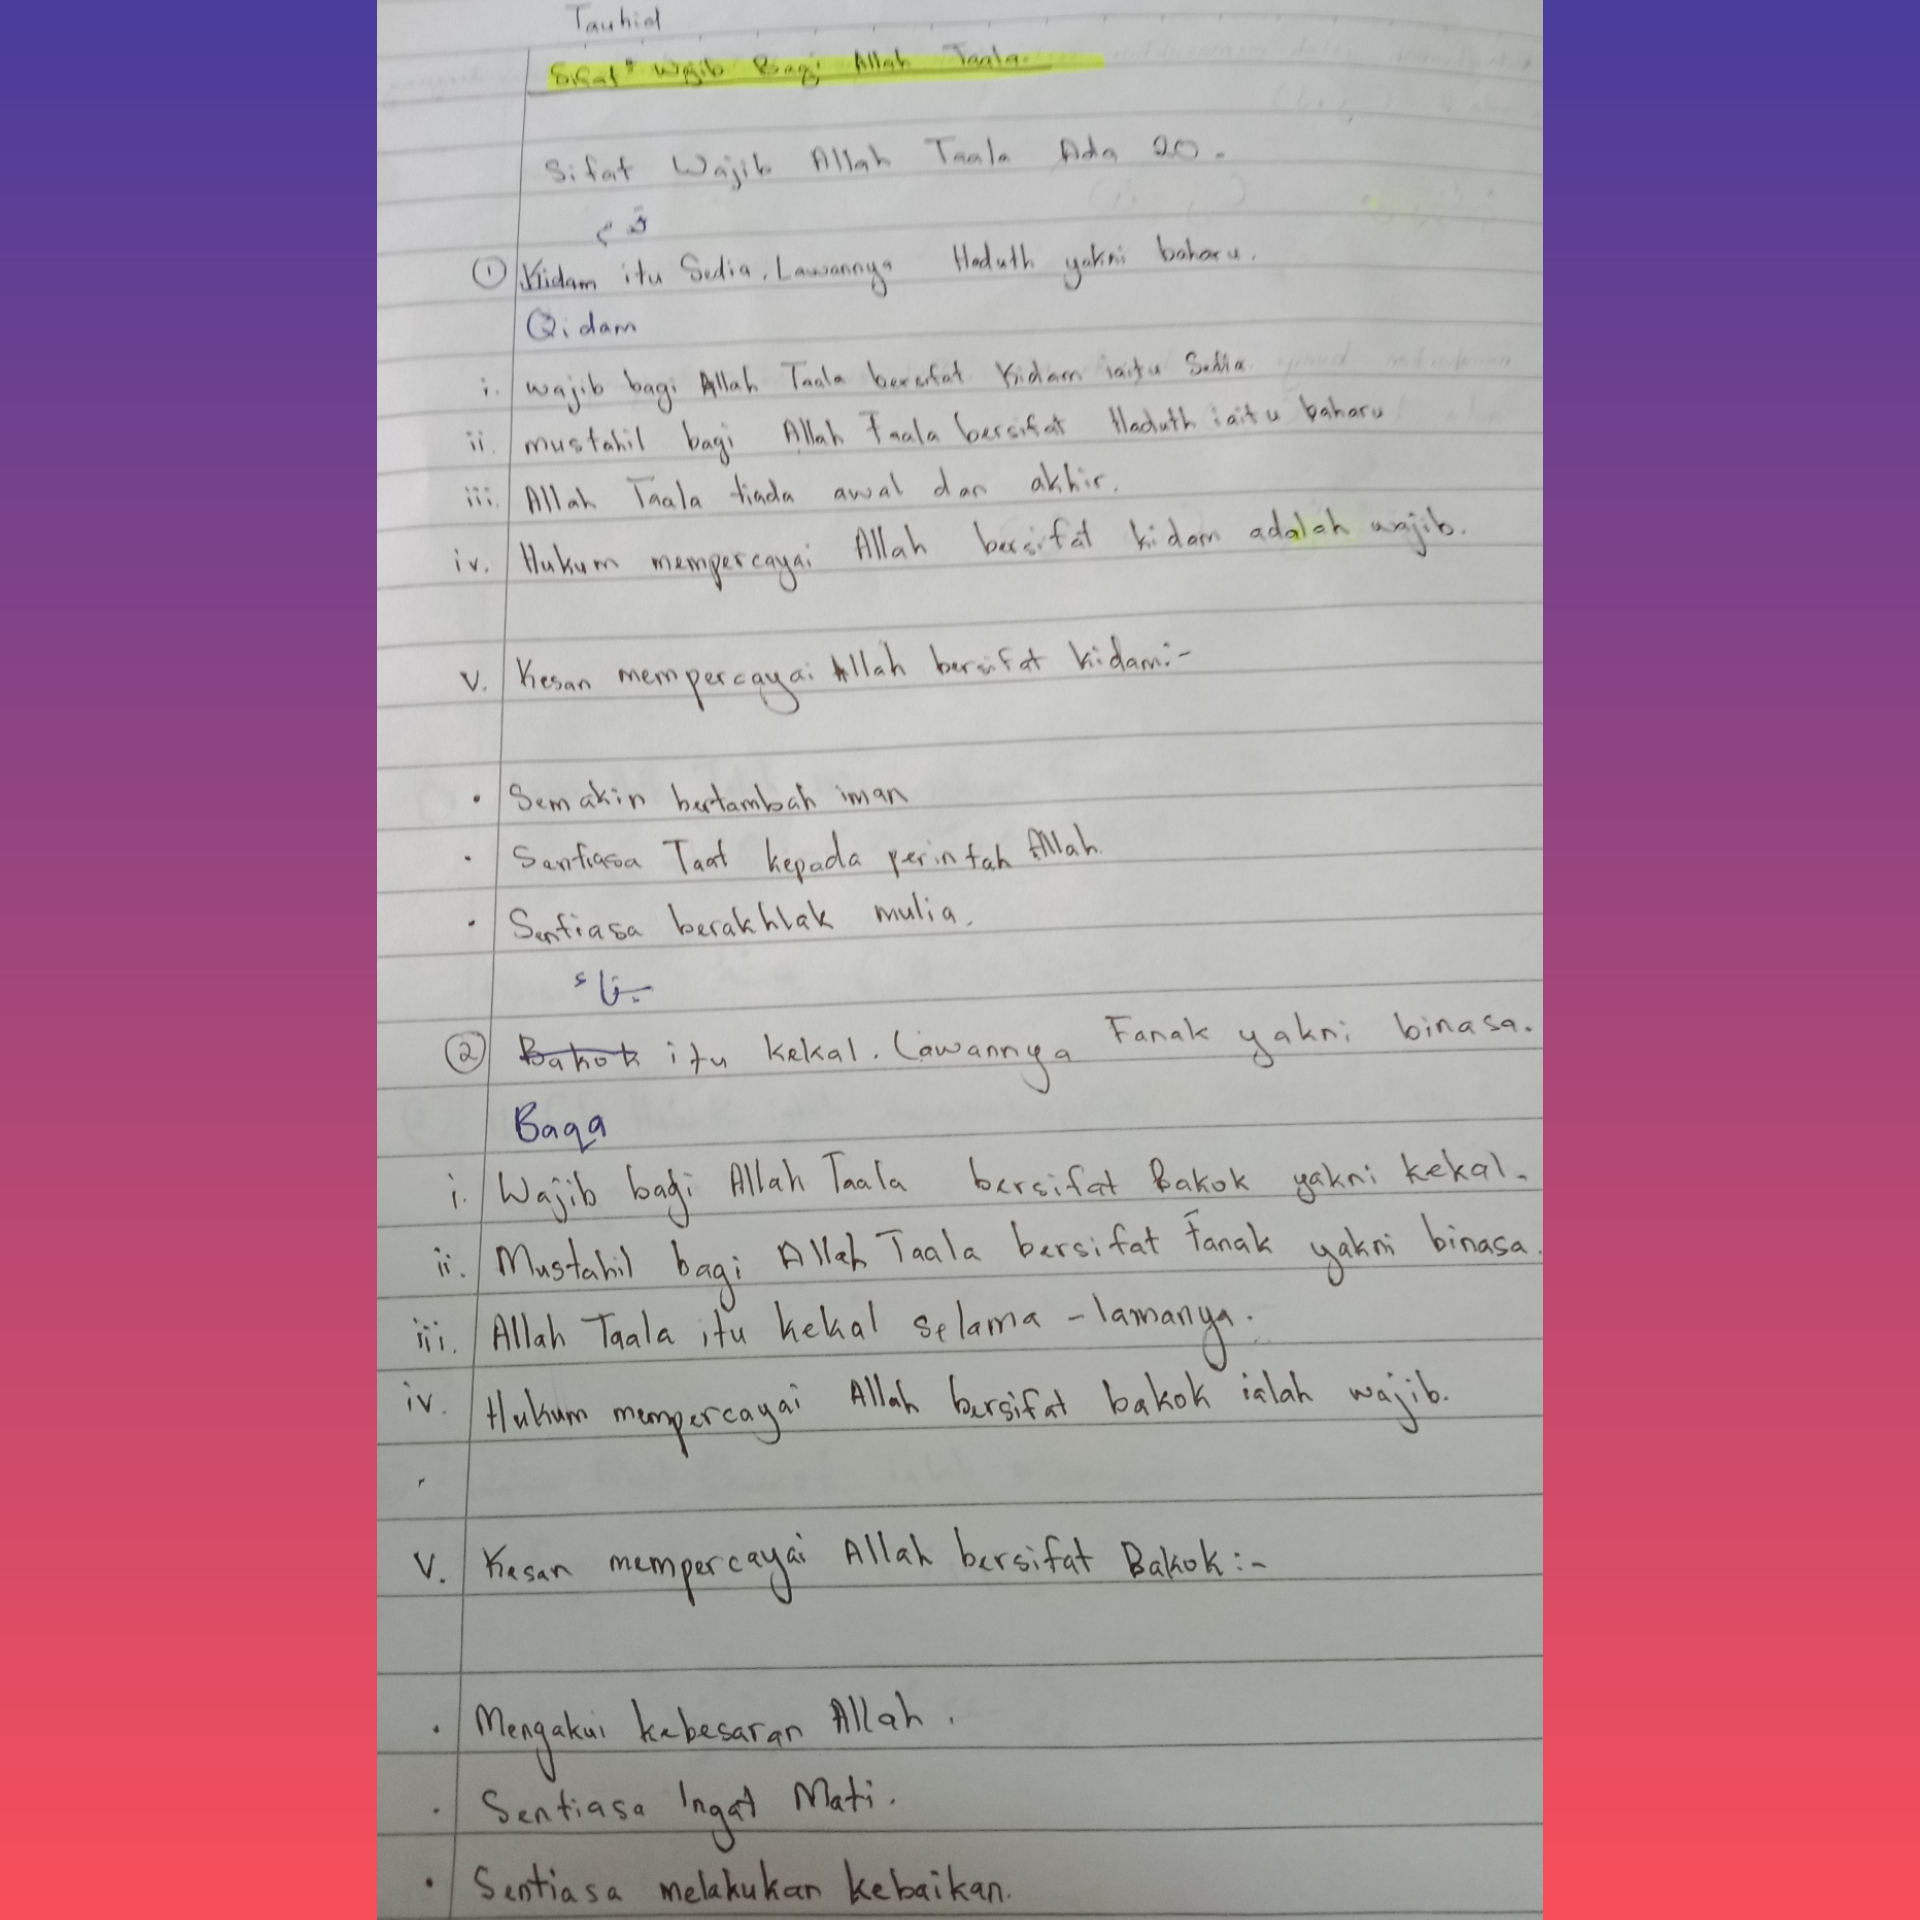 Tauhid
Sifat² Wajib Bagi Allah Taala.
Sifat Wajib Allah Taala Ada 20.
قدم
① Kidam itu Sedia. Lawannya Haduth yakni baharu.
Qidam
i. wajib bagi Allah Taala bersifat Kidam iaitu Sedia.
ii. mustahil bagi Allah Taala bersifat Haduth iaitu baharu
iii. Allah Taala tiada awal dan akhir.
iv. Hukum mempercayai Allah bersifat kidam adalah wajib.
V. Kesan mempercayai Allah bersifat kidam:-
• Semakin bertambah iman
• Sentiasa Taat kepada perintah Allah.
• Sentiasa berakhlak mulia.
بقاء
② Bakok itu kekal. Lawannya Fanak yakni binasa.
Baqa
i. Wajib bagi Allah Taala bersifat Bakok yakni kekal.
ii. Mustahil bagi Allah Taala bersifat Fanak yakni binasa.
iii. Allah Taala itu kekal selama-lamanya.
iv. Hukum mempercayai Allah bersifat bakok ialah wajib.
V. Kesan mempercayai Allah bersifat Bakok:-
• Mengakui kebesaran Allah.
• Sentiasa Ingat Mati.
• Sentiasa melakukan kebaikan.